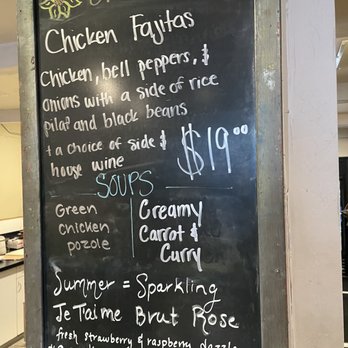 Chicken Fajitas
Chicken, bell peppers, &
onions with a side of rice
pilaf and black beans
+ a choice of side &
house wine
$19.00
SOUPS
Green
chicken
pozole
Creamy
Carrot &
Curry
Summer = Sparkling
Je T'aime Brut Rose
fresh strawberry & raspberry dazzle